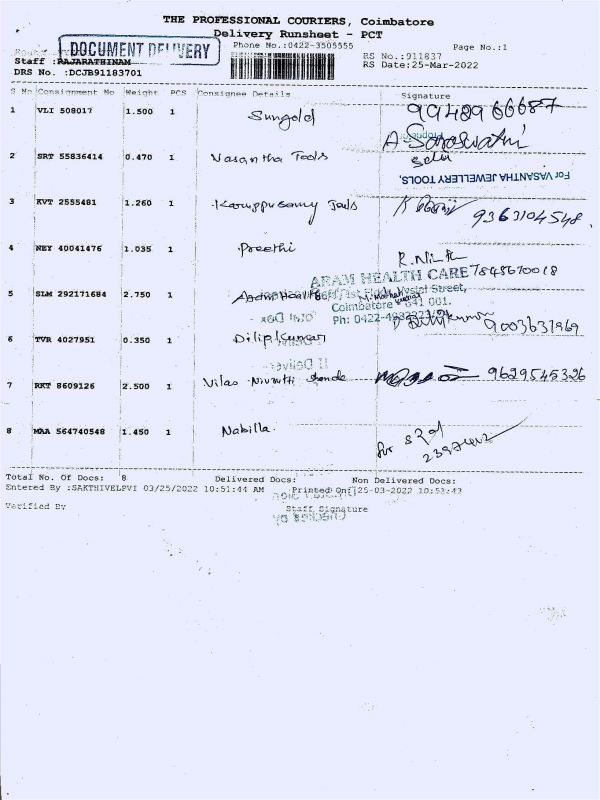 THE PROFESSIONAL COURIERS, Coimbatore
Delivery Runsheet - PCT
DOCUMENT DELIVERY
Phone No.:0422-3505555
Page No.:1
Staff :RAJARATHINAM
RS No.:911837
DRS No. :DCJB91183701
RS Date:25-Mar-2022
S No Consignment No Weight PCS Consignee Details Signature
1 VLI 508017 1.500 1 Sungold 9948966687
A Saraswathi
2 SRT 55836414 0.470 1 Vasantha Tools
For VASANTHA JEWELLERY TOOLS,
3 KVT 2555481 1.260 1 Karuppusamy Tools 9363104548.
4 NEY 40041476 1.035 1 Preethi R.
ARAM HEALTH CARE 7848670018
5 SLM 292171684 2.750 1
Coimbatore - 641 001.
Ph: 0422-
6 TVR 4027951 0.350 1 Dilip Kumar 9003631969
7 RKT 8609126 2.500 1 Vilas 9629545326
8 MAA 564740548 1.450 1 Nabilla.
Total No. Of Docs: 8 Delivered Docs: Non Delivered Docs:
Entered By :SAKTHIVELPVI 03/25/2022 10:51:44 AM Printed On: 25-03-2022 10:51:43
Verified By Staff Signature